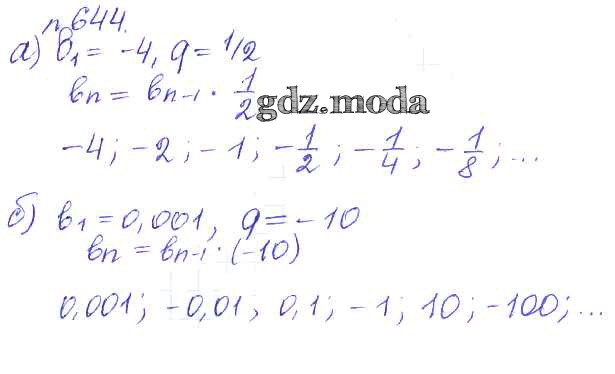 n 644.
а) b₁ = -4, q = 1/2
bn = bn-1 · 1/2
gdz.moda
-4; -2; -1; -1/2; -1/4; -1/8; ...
б) b₁ = 0,001, q = -10
bn = bn-1 · (-10)
0,001; -0,01; 0,1; -1; 10; -100; ...